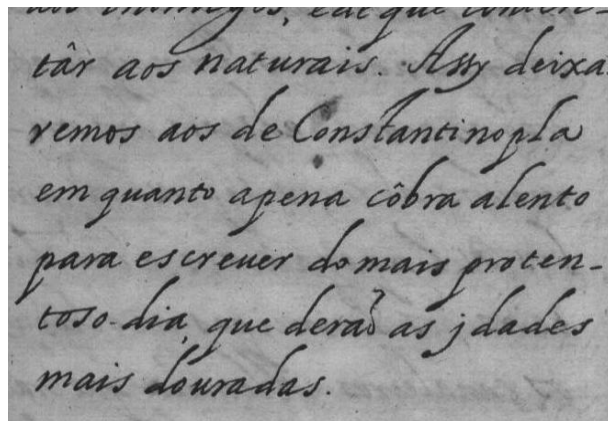 aos inimigos, e at que conten-
târ aos naturais. Assy deixa
remos aos de Constantinopla
em quanto apena côbra alento
para escreuer do mais proten-
toso dia, que deraõ as jdades
mais douradas.